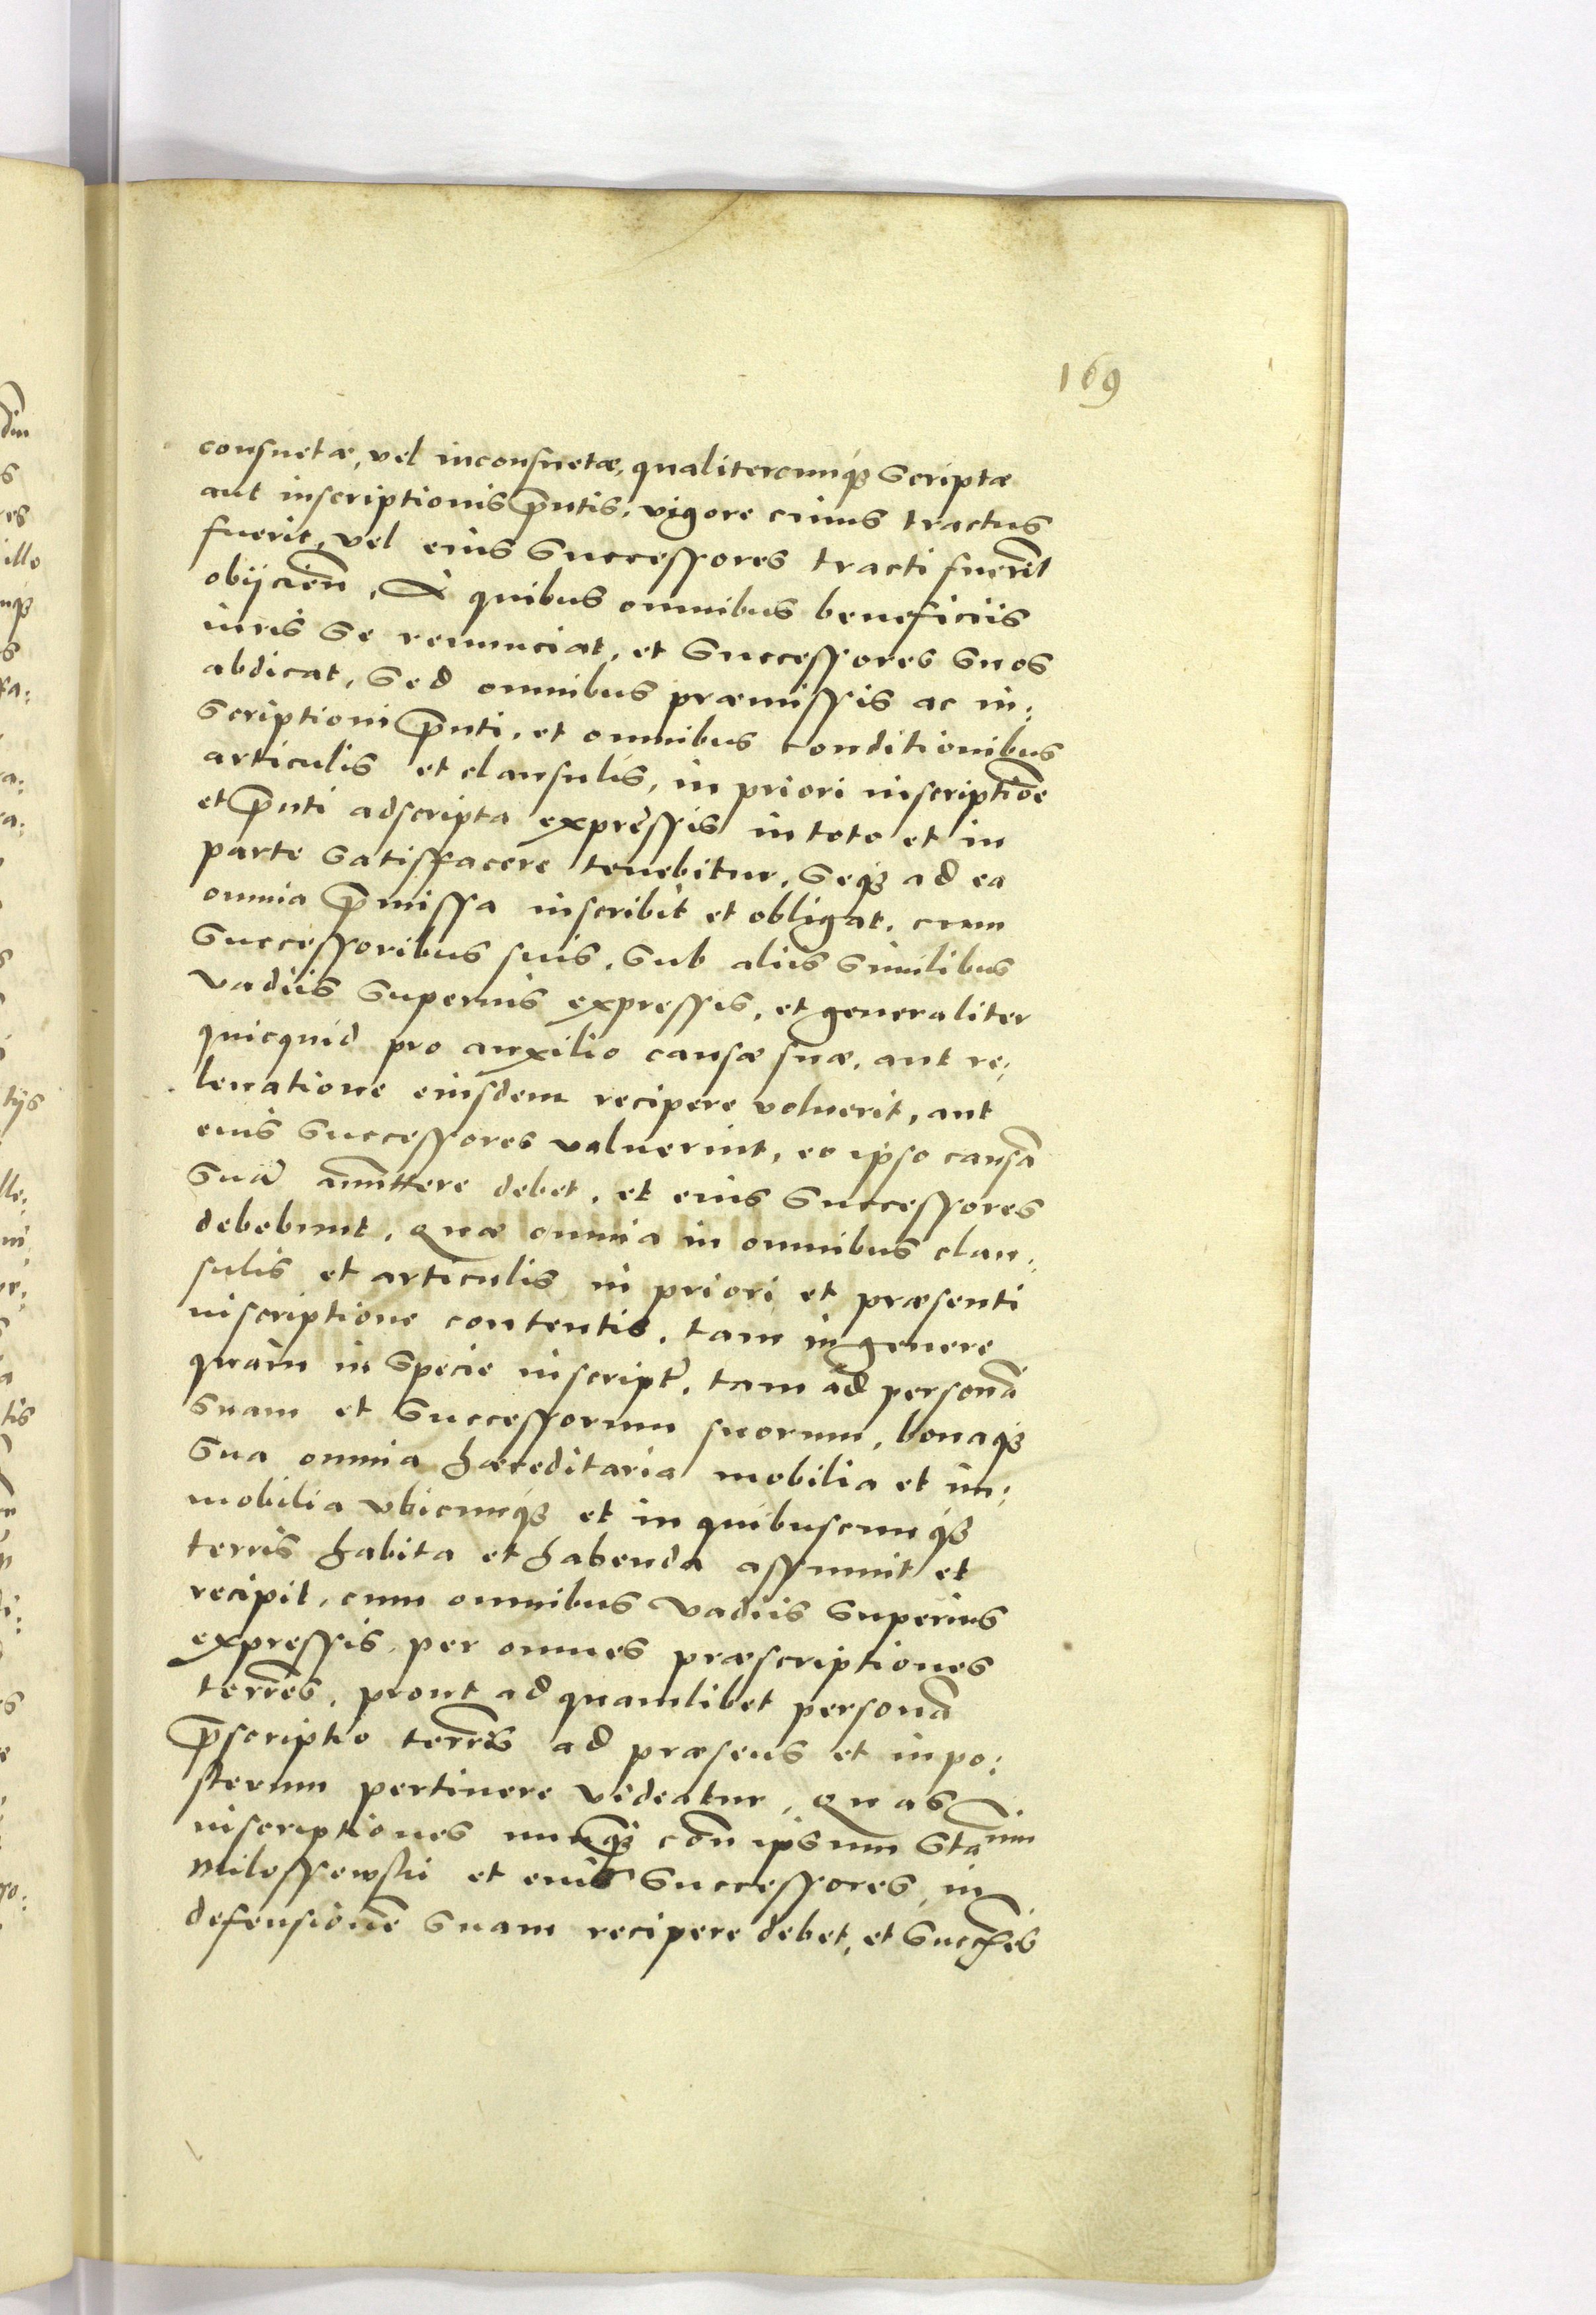 169
consuetæ, vel inconsuetæ, qualitercunq3 scriptæ
aut inscriptionis p̄ntis, vigore cuius tractus
fuerit, vel eius Successores tracti fuerīt
obijcien̄, A quibus omnibus beneficiis
iuris se renunciat, et Successores suos
abdicat, Sed omnibus præmissis ac in:
scriptioni p̄nti, et omnibus conditionibus
articulis et clausulis, in priori inscriptiōe
et p̄nti adscripta expressis in toto et in
parte satisfacere tenebitur, Seq3 ad ea
omnia p̄missa inscribit et obligat, cum
Successoribus suis, Sub aliis similibus
vadiis superius expressis, et generaliter
quicquid pro auxilio causæ suæ, aut re:
levatione eiusdem recipere voluerit, aut
eius Successores valuerint, eo ipso causā
suā amittere debet, et eius Successores
debebunt, Quæ omnia in omnibus clau:
sulis et articulis in priori et præsenti
inscriptione contentis, tam in genere
quàm in specie inscript̄, tam ad personā
suam et Successorum suorum, bonaq3
sua omnia hæreditaria mobilia et im:
mobilia vbicunq3 et in quibuscunq3
terris habita et habenda assumit et
recipit, cum omnibus vadiis superius
expressis, per omnes præscriptiones
terr̄es, prout ad quamlibet personā
p̄scriptio terr̄is ad præsens et in po:
sterum pertinere videatur, Quas
inscriptiones nunq3 con̄ ipsum Stanum
Milossewski et eius Successores, in
defensionē suam recipere debet, et Succ̄ses